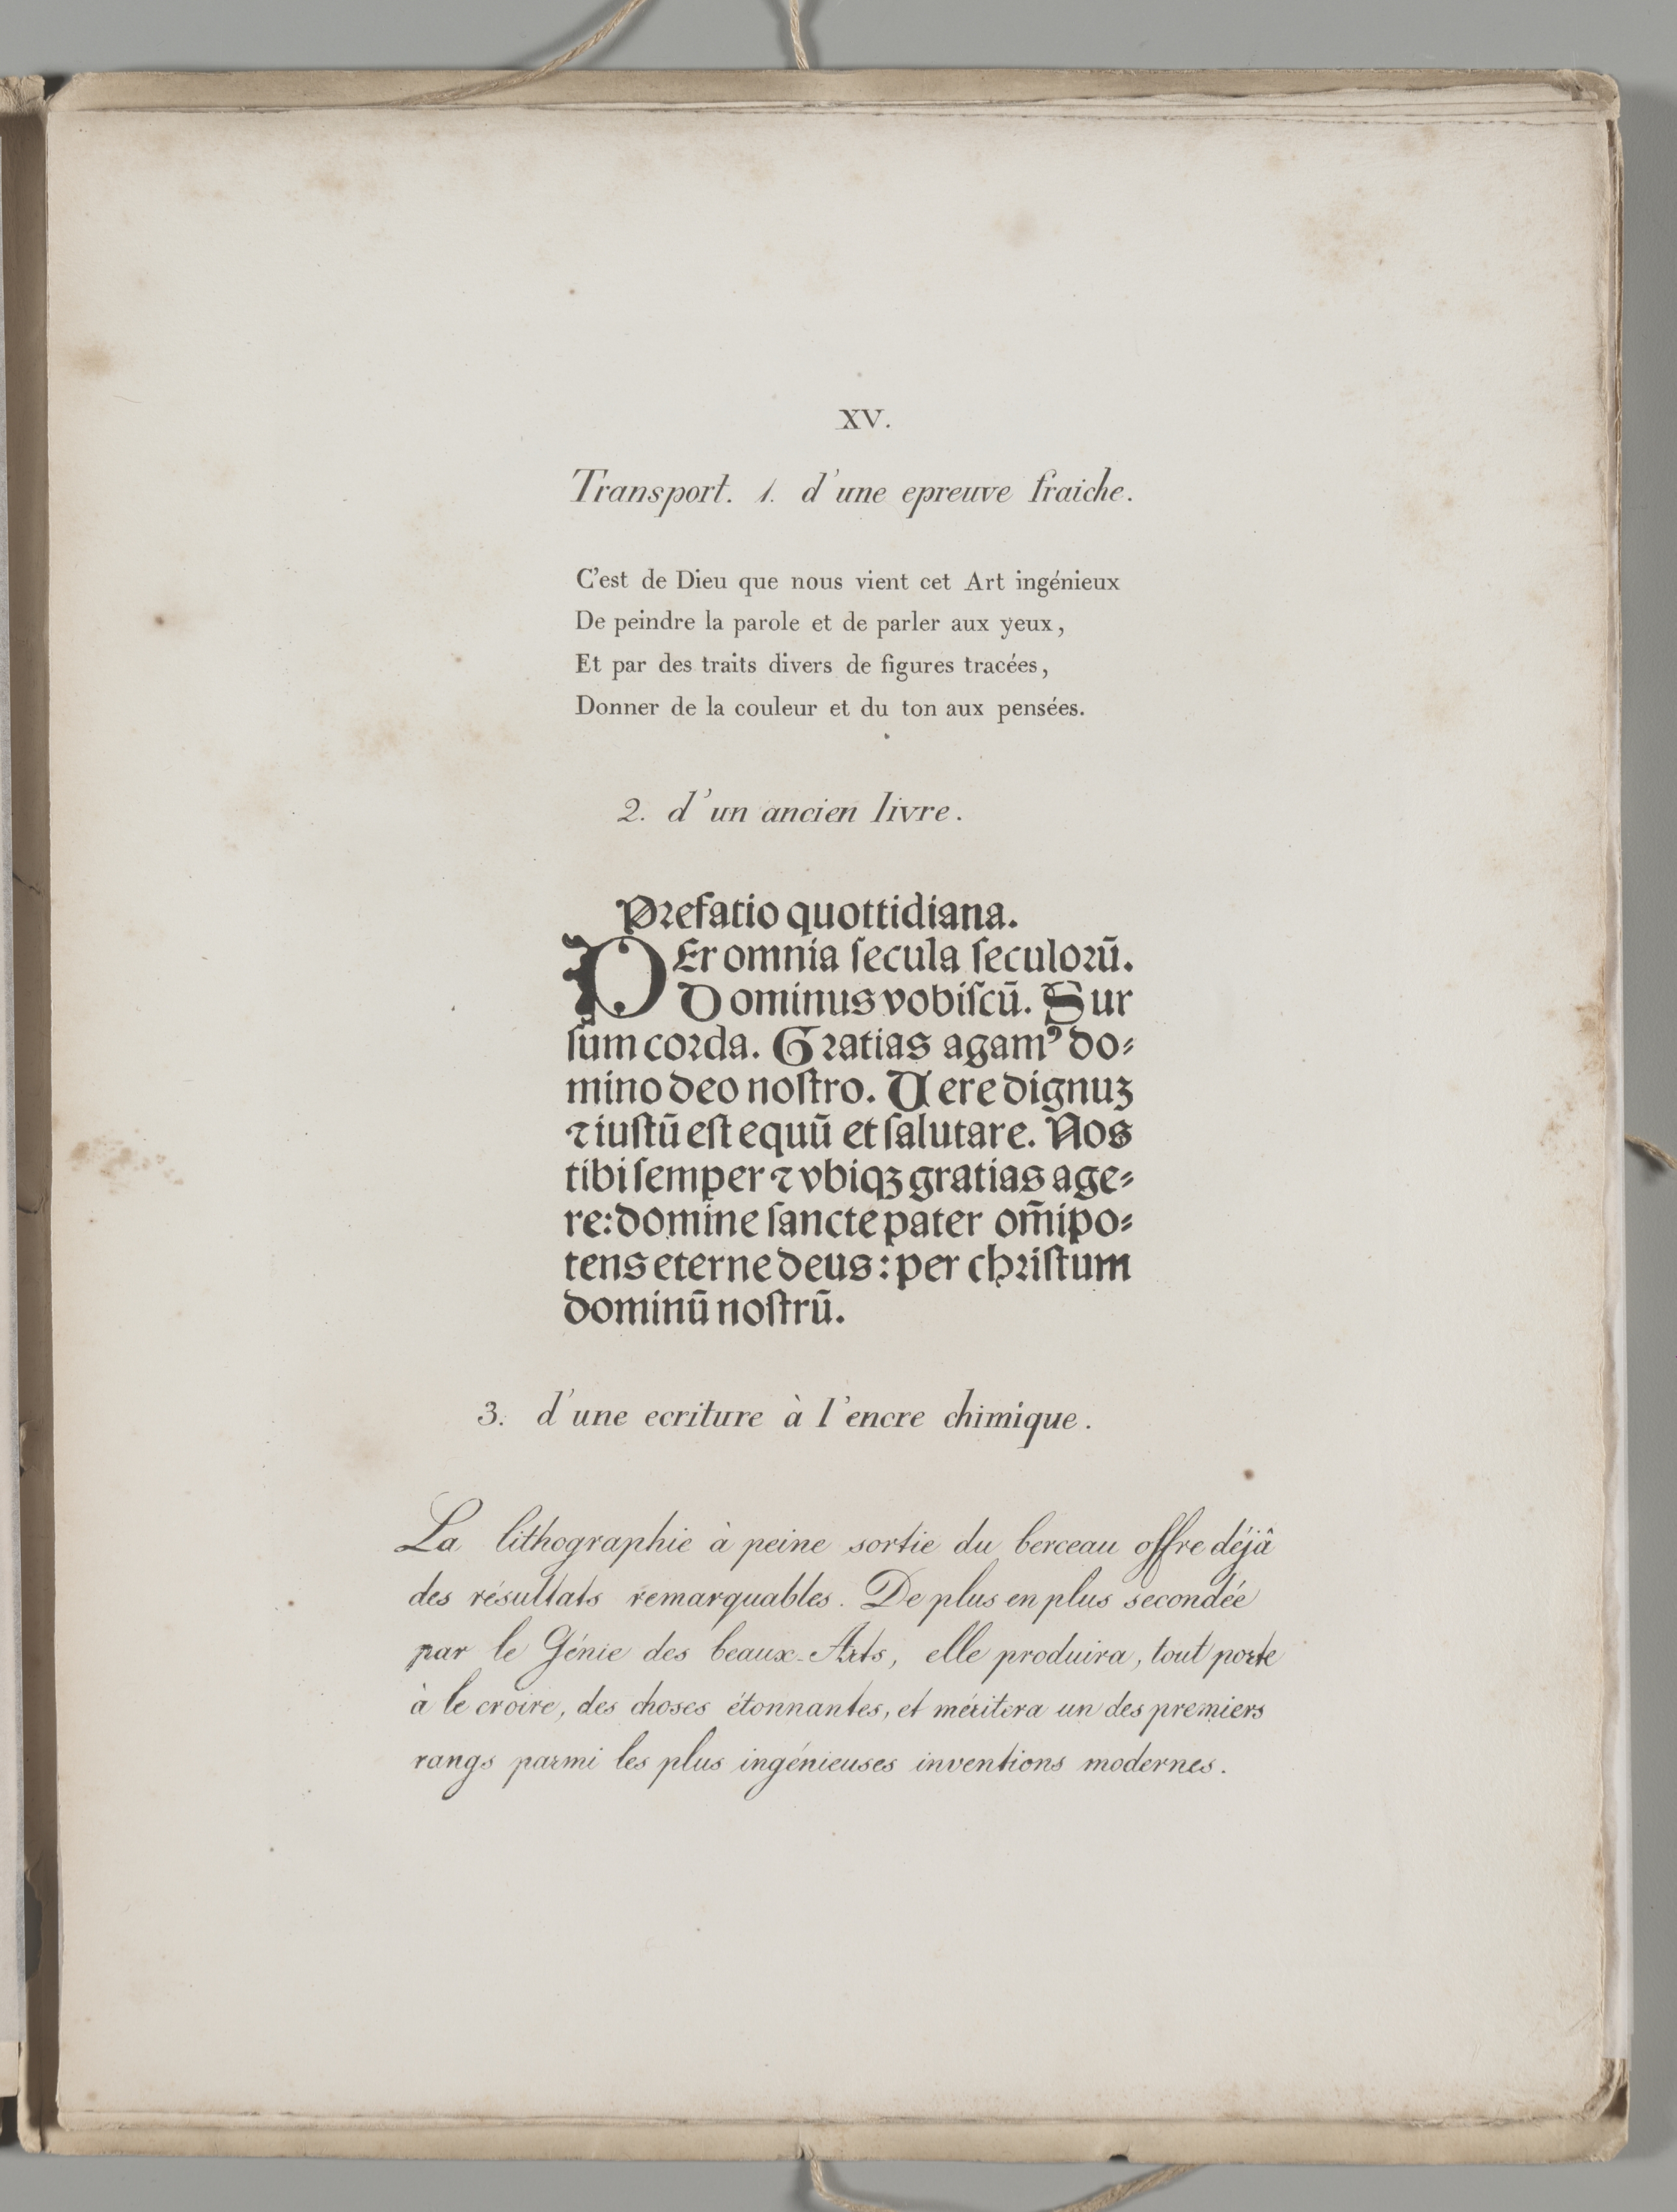 XV.
Transport. 1. d'une epreuve fraiche.
C'est de Dieu que nous vient cet Art ingénieux
De peindre la parole et de parler aux yeux,
Et par des traits divers de figures tracées,
Donner de la couleur et du ton aux pensées.
2. d'un ancien livre.
Prefatio quottidiana.
PEr omnia ſecula ſeculoꝛū.
Dominus vobiſcū. Sur
ſum coꝛda. Gꝛatias agamꝰ do⸗
mino deo noſtro. Uere dignuꝫ
⁊ iuſtū eſt equū et ſalutare. Nos
tibi ſemper ⁊ vbiqꝫ gratias age⸗
re: domine ſancte pater om̄ipo⸗
tens eterne deus: per chꝛiſtum
dominū noſtrū.
3. d'une ecriture à l'encre chimique.
La lithographie à peine sortie du berceau offre déjâ
des résultats remarquables. De plus en plus secondée
par le Génie des beaux-Arts, elle produira, tout porte
à le croire, des choses étonnantes, et méritera un des premiers
rangs parmi les plus ingénieuses inventions modernes.